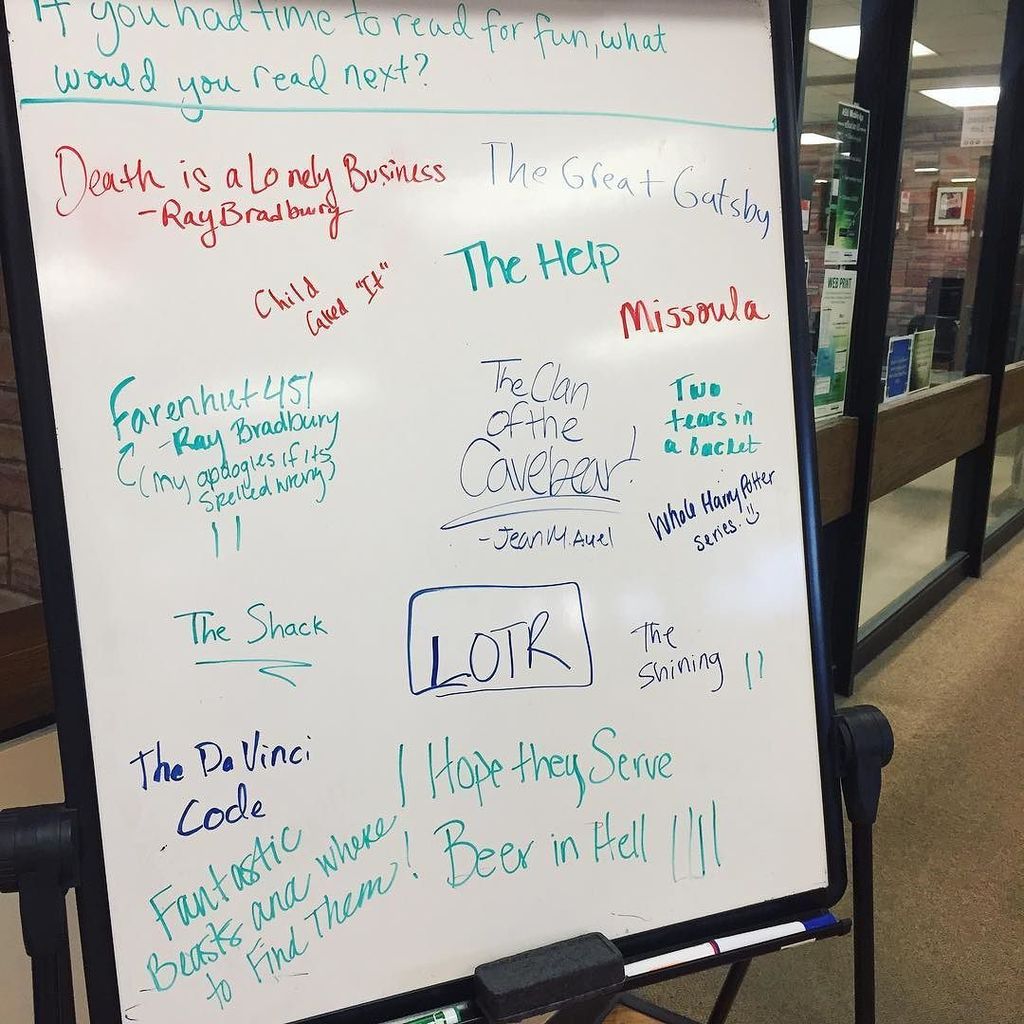 If you had time to read for fun, what
would you read next?
Death is a Lonely Business
-Ray Bradbury
The Great Gatsby
The Help
Child
Called "It"
Missoula
Farenhiet 451
-Ray Bradbury
(my apologies if its
spelled wrong)
The Clan
of the
Cavebear!
-Jean M. Auel
Two
tears in
a bucket
Whole Harry Potter
series.
The Shack
LOTR
The
Shining
The Da Vinci
Code
I Hope they Serve
Beer in Hell
Fantastic
Beasts and where
to Find Them!
WEB PRINT